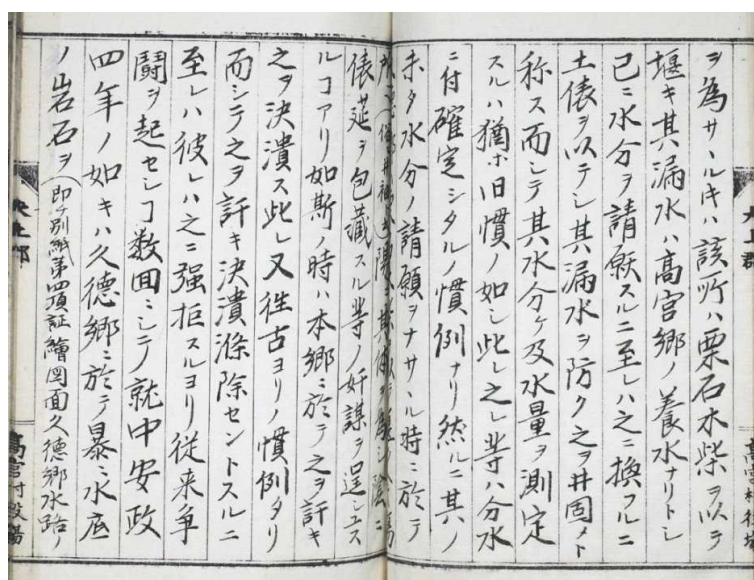 ヲ為サヽルキハ該所ハ栗石水柴ヲ以テ
堰キ其漏水ハ高宮郷ノ養水ナリトシ
已ニ水分ヲ請願スルニ至レハ之ニ換フルニ
土俵ヲ以テシ其漏水ヲ防ク之ヲ井固メト
称ス而シテ其水分ケ及水量ヲ測定
スルハ猶ホ旧慣ノ如シ此レ之レ等ハ分水
ニ付確定シタルノ慣例ナリ然ルニ其ノ
未タ水分ノ請願ヲナサヽル時ニ於テ
俵莚ヲ包蔵スル等ノ奸謀ヲ逞シエス
ルコアリ如斯ノ時ハ本郷ニ於テ之ヲ訐キ
之ヲ決潰ス此レ又往古ヨリノ慣例タリ
而シテ之ヲ訐キ決潰滌除セントスルニ
至レハ彼レハ之ニ強拒スルヨリ従来争
闘ヲ起セシコ数回ニシテ就中安政
四年ノ如キハ久徳郷ニ於テ暴ニ水底
ノ岩石ヲ(即チ別紙第四項証繪図面久徳郷水路ノ
犬上郡
高宮村役場